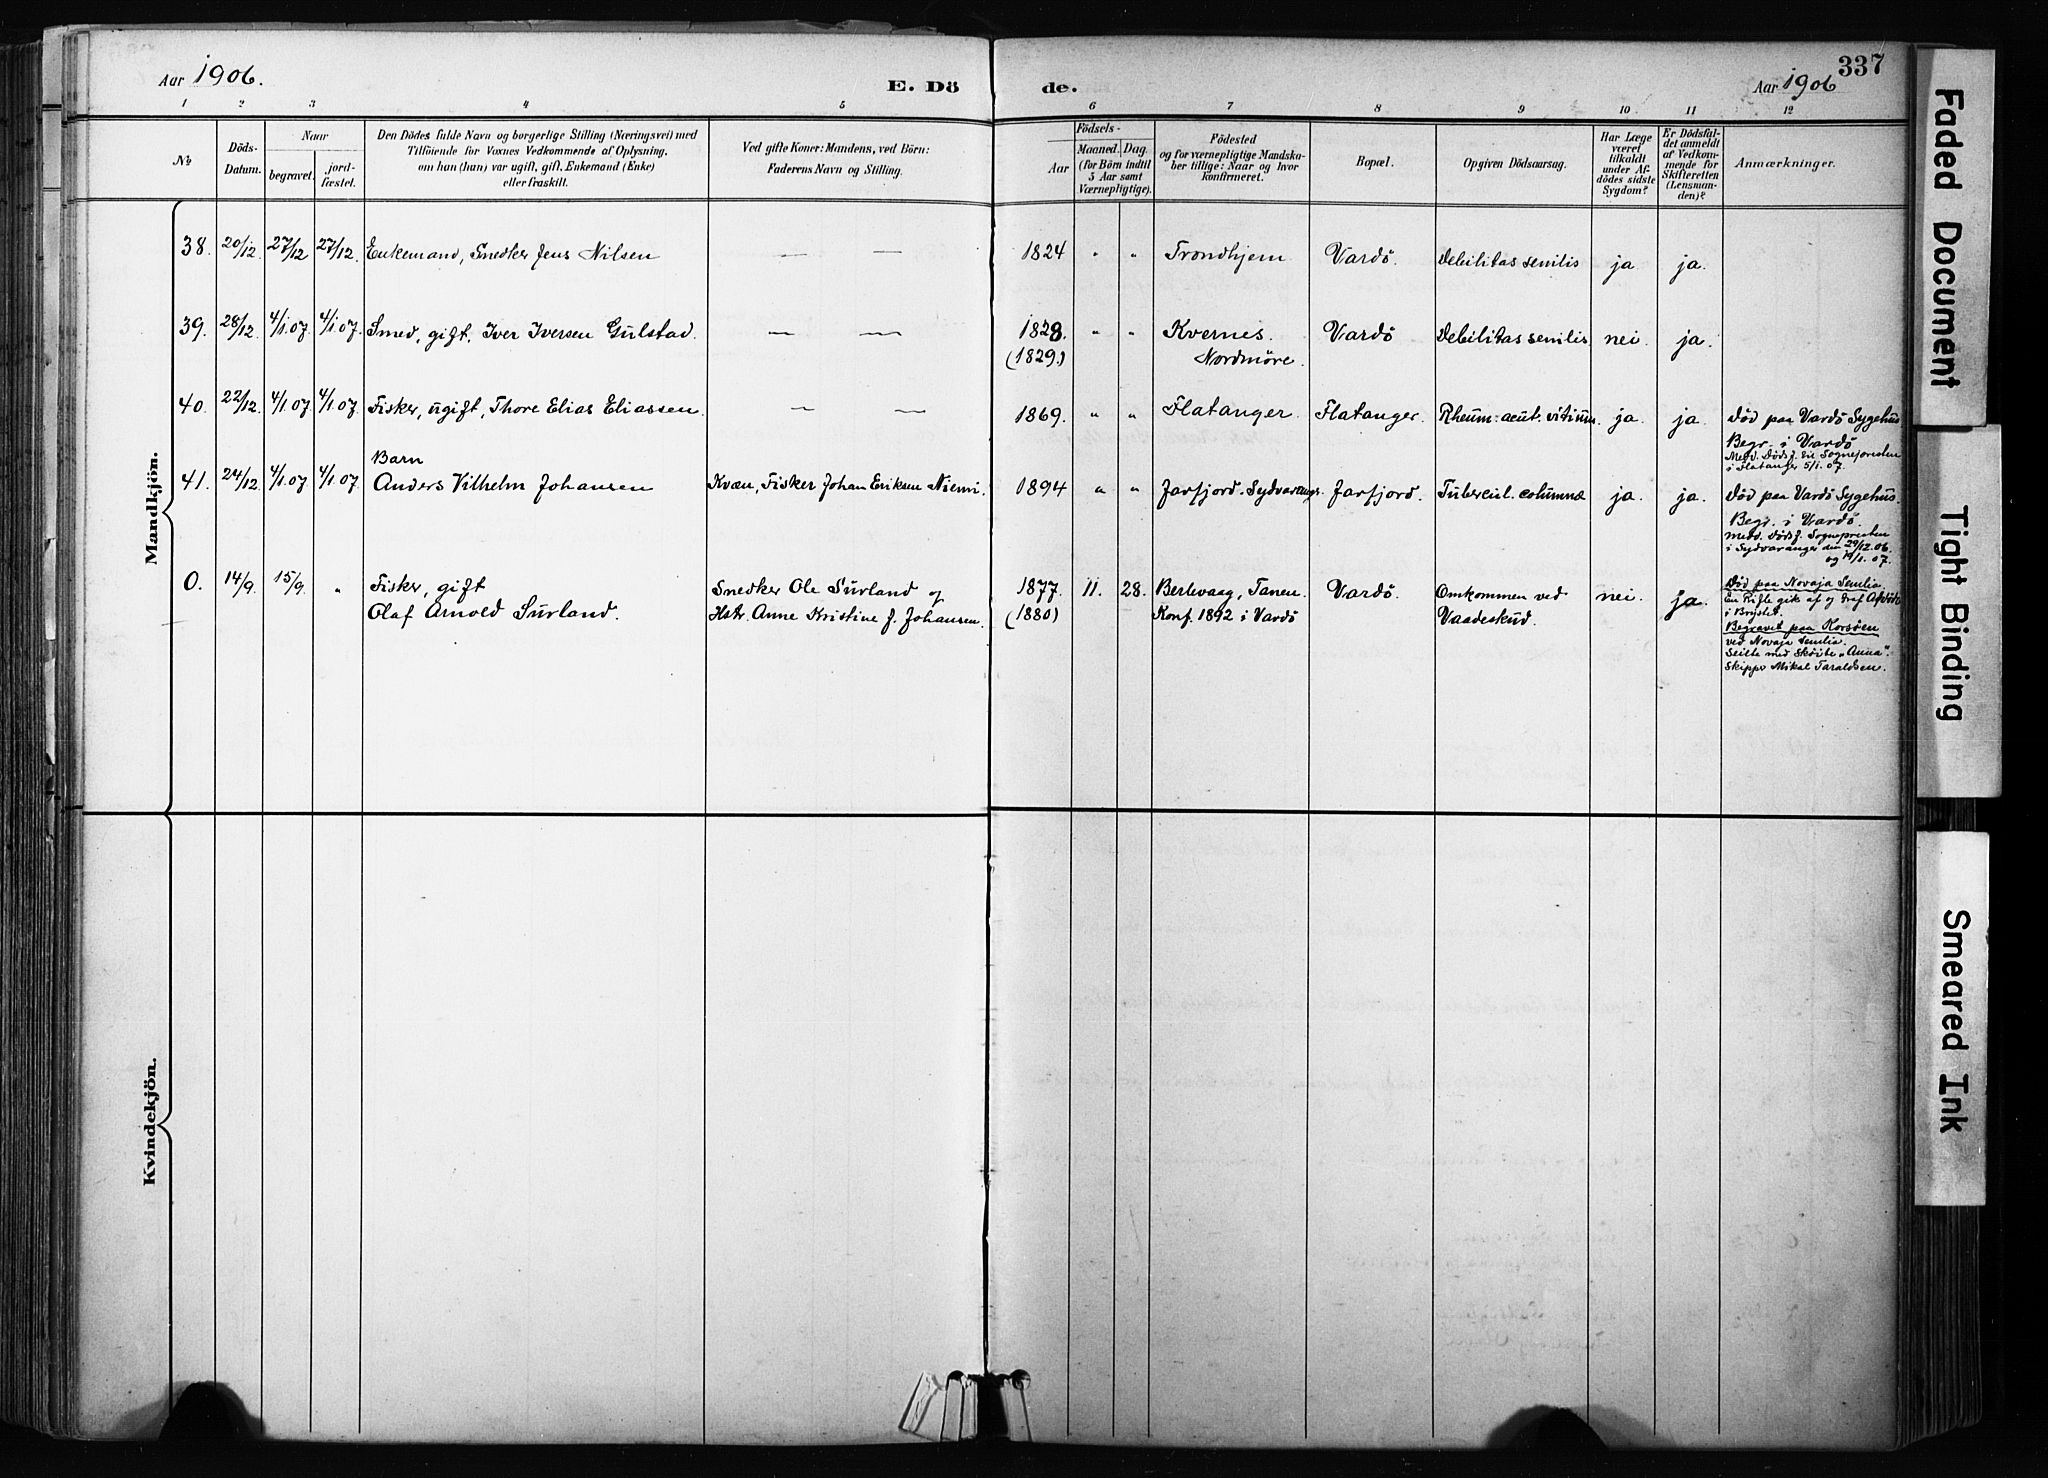 Aar 1906.
E. Dö
de.
Aar 1906
337
1 2 3 4 5 6 7 8 9 10 11 12
No
Döds-
Datum.
Naar
begravet.
jord-
fæstet.
Den Dödes fulde Navn og borgerlige Stilling (Næringsvei) med
Tilföiende for Voxnes Vedkommende af Oplysning,
om han (hun) var ugift, gift, Enkemand (Enke)
eller fraskilt.
Ved gifte Koner: Mandens, ved Börn:
Faderens Navn og Stilling.
Födsels-
Aar
Maaned. Dag.
(for Börn indtil
5 Aar samt
Værnepligtige).
Födested
og for værnepligtige Mandska-
ber tillige: Naar og hvor
konfirmeret.
Bopæl.
Opgiven Dödsaarsag.
Har Læge
været
tilkaldt
under Af-
dödes sidste
Sygdom?
Er Dödsfal-
det anmeldt
af Vedkom-
mende for
Skifteretten
(Lensman-
den)?
Anmærkninger.
Mandkjön.
38. 20/12. 27/12 27/12. Enkemand, Snedker Jens Nilsen — — 1824 " " Trondhjem Vardö. Debilitas senilis ja ja.
39. 28/12. 4/1.07. 4/1.07. Smed, gift. Iver Iversen Gulstad. — — 1828. " " Kvernes. Vardö Debilitas senilis. nei. ja.
(1829.) Nordmöre.
40. 22/12. 4/1.07. 4/1.07. Fisker, ugift, Thore Elias Eliassen. — — 1869. " " Flatanger. Flatanger. Rheum. acut. vitium. ja. ja. Död paa Vardö Sygehus.
Begr. i Vardö
Medd. Dödsf. til Sognepresten
i Flatanger 5/1.07.
Barn
41. 24/12. 4/1.07 4/1.07. Anders Vilhelm Johansen Kvæn, Fisker Johan Eriksen Niemi. 1894 " " Jarfjord. Sydvaranger. Jarfjord. Tubercul. columnæ ja. ja. Död paa Vardö Sygehus.
Begr. i Vardö.
Medd. Dödsf. Sognepresten
i Sydvaranger den 29/12.06.
0. 14/9. 15/9. " Fisker, gift Snedker Ole Surland og 1877. 11. 28. Berlevaag, Tanen. Vardö. Omkommen ved nei. ja. Död paa Novaja Semlia.
Olaf Arnold Surland. Hstr. Anne Kristine f. Johansen. (1880) Konf. 1892 i Vardö Vaadeskud. En Rifle gik af og traf Afdöde
i Brystet.
Begravet paa Korsöen
ved Novaja Semlia.
Seilte med Sköite "Anna".
Skipper Mikal Taraldsen.
Kvindekjön.
Faded Document
Tight Binding
Smeared Ink